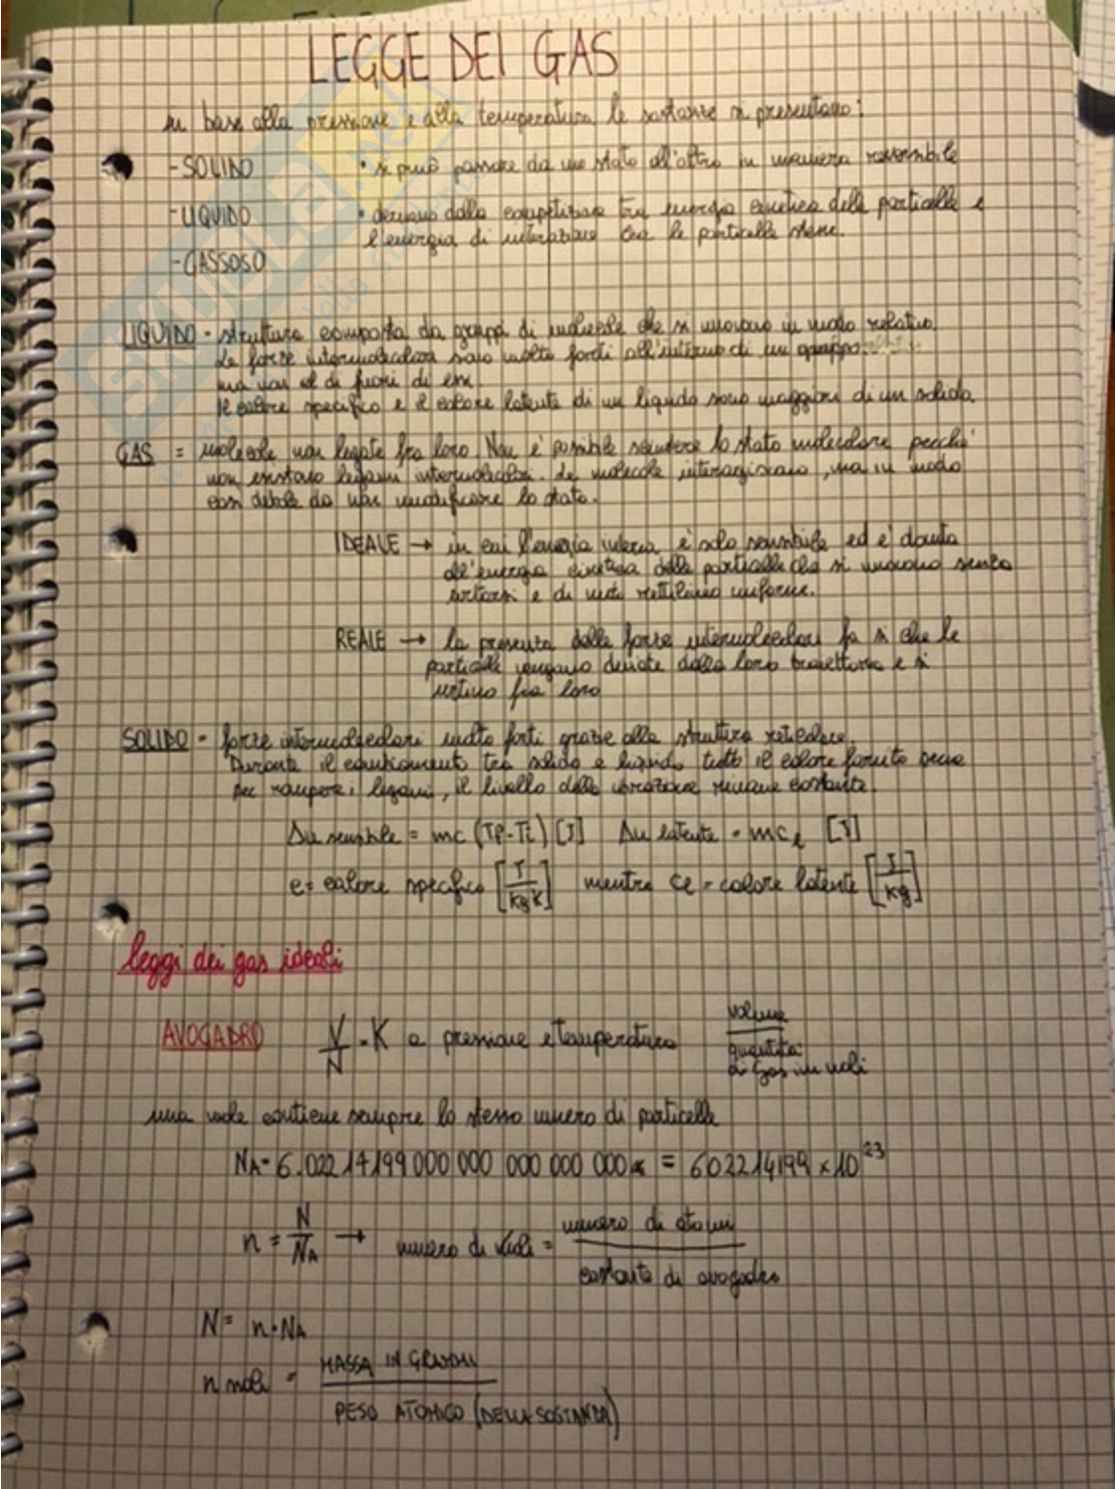 LEGGE DEI GAS
in base alla pressione e alla temperatura, le sostanze si presentano:
- SOLIDO • si può passare da uno stato all'altro in maniera reversibile
- LIQUIDO • derivano dalla competizione tra energia cinetica delle particelle e
l'energia di interazione tra le particelle stesse.
- GASSOSO
LIQUIDO - struttura composta da gruppi di molecole che si muovono in modo relativo.
Le forze intermolecolari sono molto forti all'interno di un gruppo
ma non al di fuori di essi.
Il calore specifico e il calore latente di un liquido sono maggiori di un solido.
GAS = molecole non legate fra loro. Non è possibile scindere lo stato molecolare perchè
non esistono legami intermolecolari. Le molecole interagiscono, ma in modo
così debole da non modificare lo stato.
IDEALE → in cui l'energia interna è solo sensibile ed è dovuta
all'energia cinetica delle particelle che si muovono senza
urtarsi e di moto rettilineo uniforme.
REALE → la presenza delle forze intermolecolari fa si che le
particelle vengano deviate dalla loro traiettoria e si
urtino fra loro
SOLIDO - forze intermolecolari molto forti grazie alla struttura reticolare.
Durante il cambiamento tra solido e liquido tutto il calore fornito serve
per rompere i legami, il livello della vibrazione rimane costante.
Δu sensibile = mc (Tf-Ti) [J] Δu latente = mc_l [J]
c = calore specifico [J/kg K] mentre ce = calore latente [J/kg]
leggi dei gas ideali
AVOGADRO V/N = K a pressione e temperatura volume/quantità
di gas in moli
una mole contiene sempre lo stesso numero di particelle
NA = 6.022 14199 000 000 000 000 000 = 602214199 x 10^23
n = N/NA → numero di moli = numero di atomi/costante di avogadro
N = n·NA
n moli = MASSA IN GRAMMI/PESO ATOMICO (DELLA SOSTANZA)